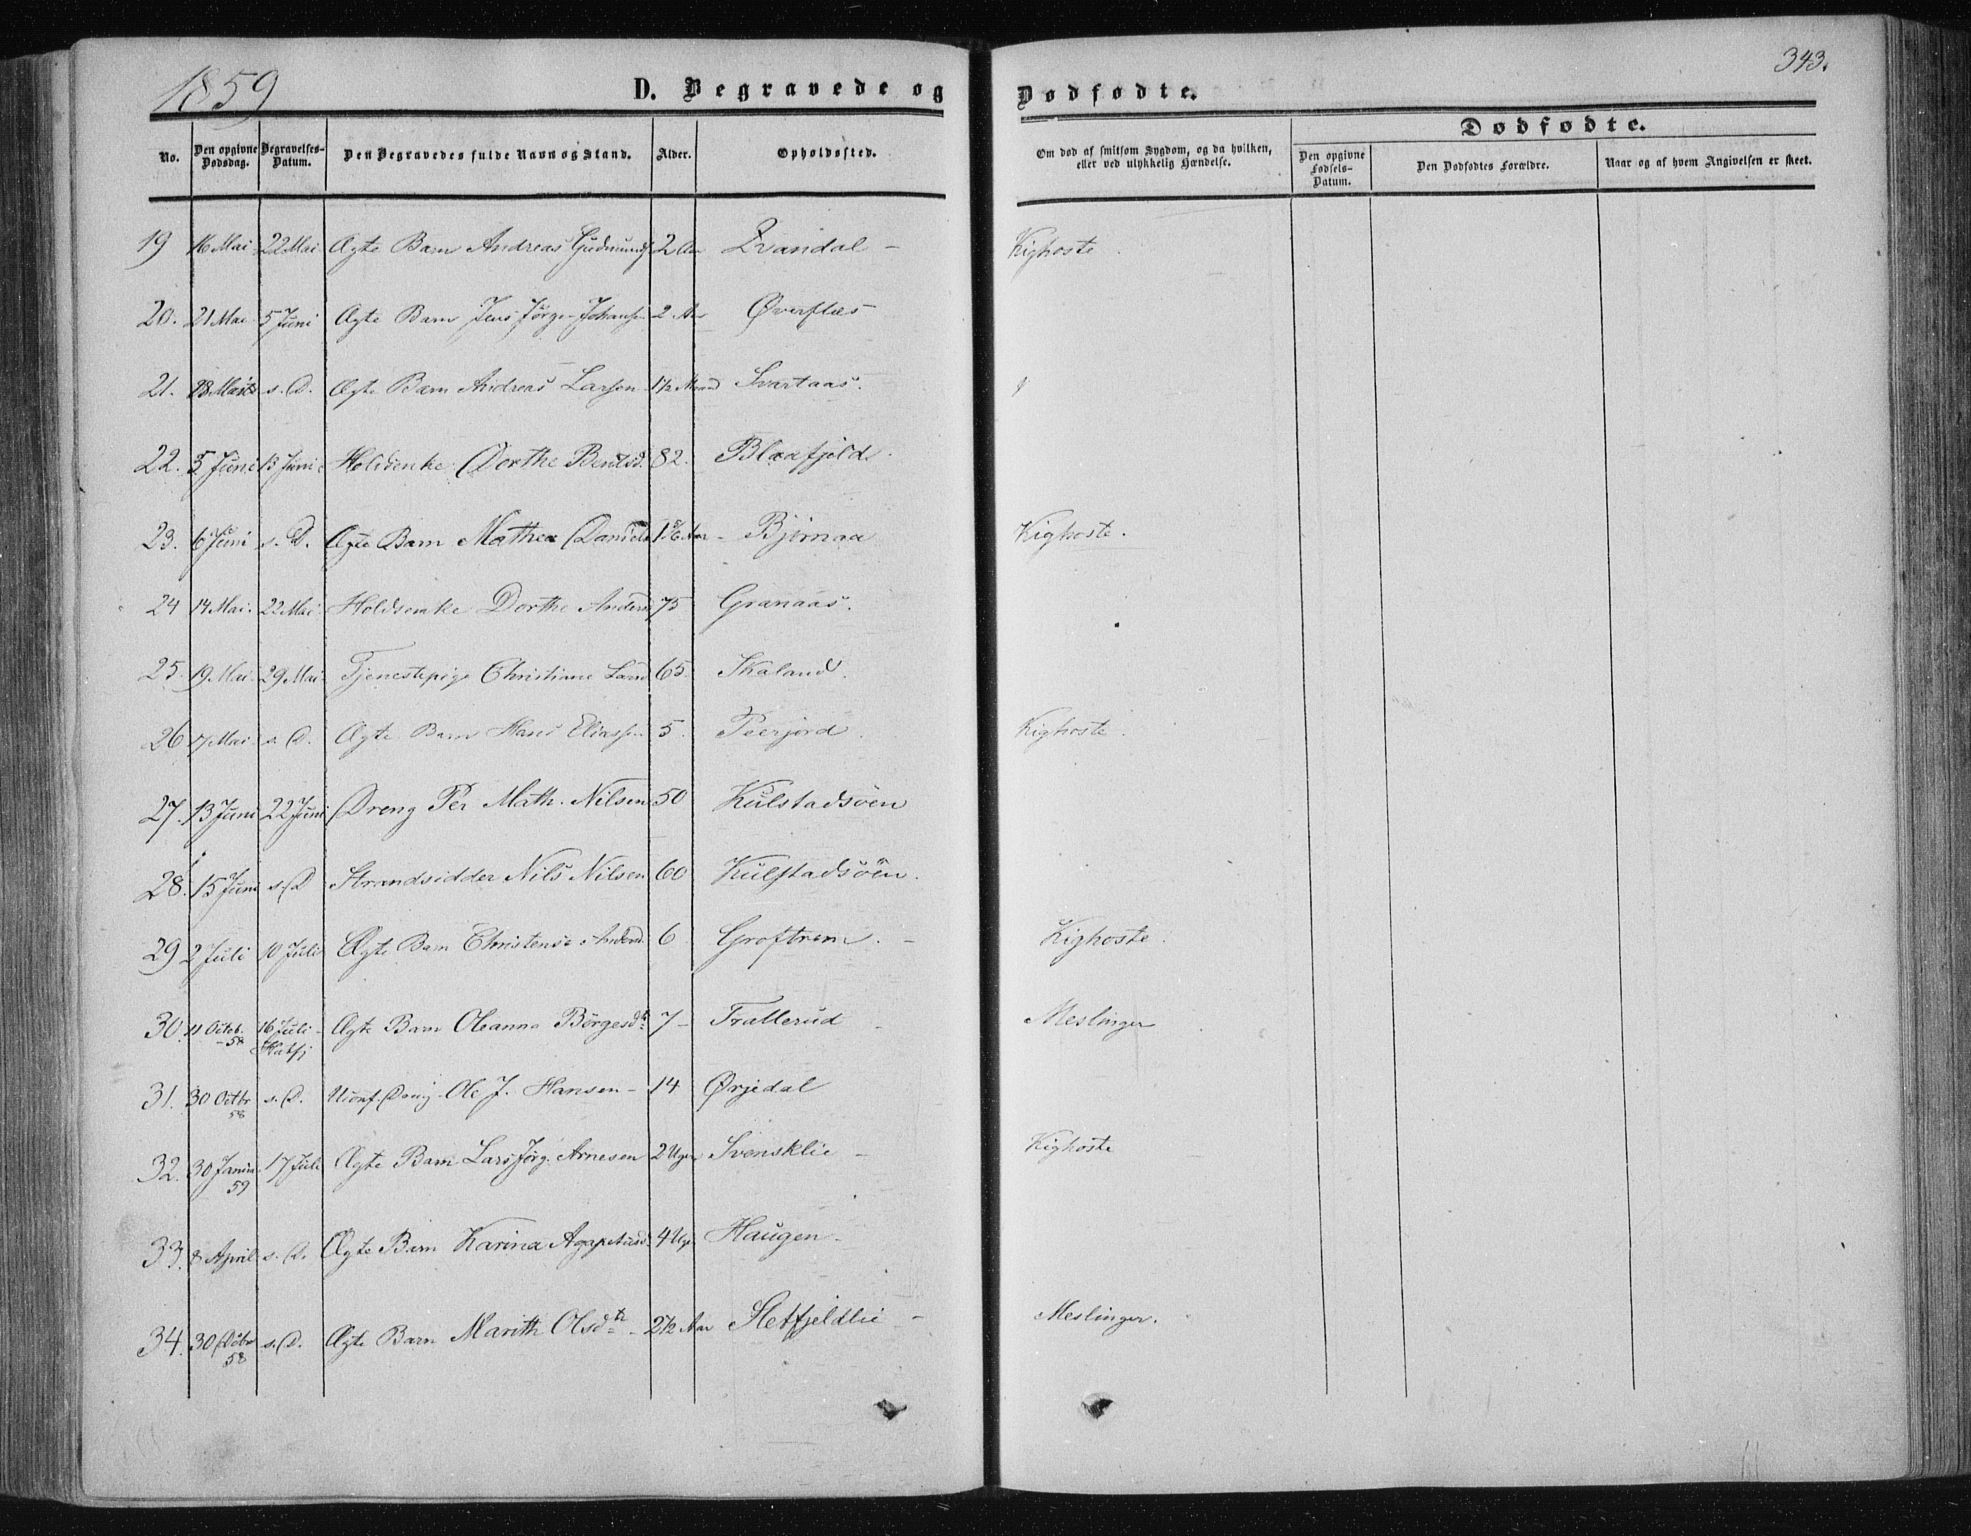 1859
343.
D. Begravede og Dødfødte.
No. Den opgivne Dødsdag. Begravelses-Datum. Den Begravedes fulde Navn og Stand. Alder. Opholdssted. Om død af smitsom Sygdom, og da hvilken, eller ved ulykkelig Hændelse. Dødfødte. Den opgivne Fødsels-Datum. Den Dødfødtes Forældre. Naar og af hvem Angivelsen er skeet.
19 16 Mai 22 Mai Ægte Barn Andreas Gudmunds 2 Aar Kighoste
20. 21 Mai 5 Juni Ægte Barn Jens Jørgen Johansen 2 Aar Øverflæs
21. s. D. Ægte Barn Andreas Larsen 1½ Maaned Svartaas.
22. 5 Juni 13 Juni Holdsenke Dorthe Bentsd. 82. Blaafjeld.
23. 6 Juni s. D. Ægte Barn Mathea Daniels Aar Bjørnaa Kighoste.
24 14 Mai. 22 Mai. Holdsenke Dorthe Anders 75 Granaas.
25. 19 Mai. 29 Mai. Tjenestepige Christiane Lars 65. Skaland.
26 17 Mai s. D. Ægte Barn Hans Eliassen 5. Kighoste.
27. 13 Juni 22 Juni Dreng Per Math. Nilsen 50 Kulstadsøen
28. 15 Juni s. D Strandsidder Nils Nilsen 60 Kulstadsøen.
29 2 Juli 10 Juli Ægte Barn Christense Andersd. 6 Groftrem. Kighoste.
30. 11 Octob. 58 16 Juli Hatfj Ægte Barn Oleanna Børgesdtr 7 Trallerud Meslinger
31. 30 Octbr 58 s. D. Ukonf. Dreng Ole J. Hansen 14 Ørjedal
32. 30 Janua 59 17 Juli Ægte Barn Lars Jørg. Arnesen 2 Uger Svensklie Kighoste
33. 8 April s. D. Ægte Barn Karina Agapetusd. 4 Uger Haugen
34. 30 Octbr 58 s. D. Ægte Barn Marith Olsdtr 2½ Aar Sletfjeldlie Meslinger.